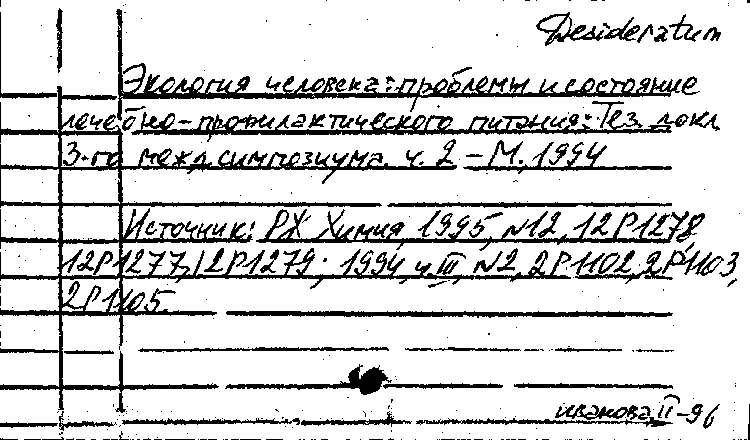 Desideratum
Экология человека: проблемы и состояние
лечебно-профилактического питания: Тез. докл.
3-го межд. симпозиума. ч. 2 - М., 1994
Источник: РЖ Химия, 1995, №12, 12Р1278,
12Р1277, 12Р1279; 1994, ч. III, №2, 2Р1102, 2Р1103,
2Р1105.
Иванова, II-96